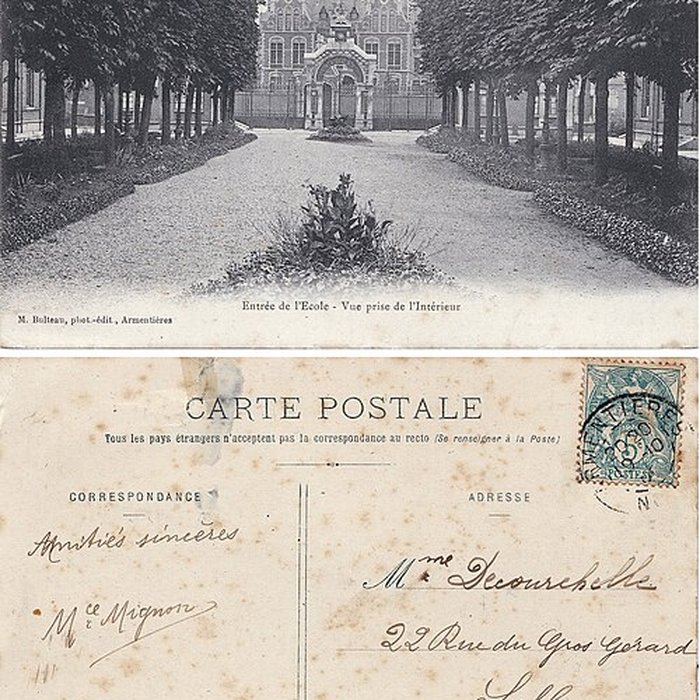 Entrée de l'Ecole - Vue prise de l'Intérieur
M. Bulteau, phot.-édit, Armentières
CARTE POSTALE
Tous les pays étrangers n'acceptent pas la correspondance au recto (Se renseigner à la Poste)
CORRESPONDANCE
ADRESSE
Amitiés sincères
Mce Mignon
Mme Decourchelle
22 Rue du Gros Gérard
ARMENTIERES
5
POSTES